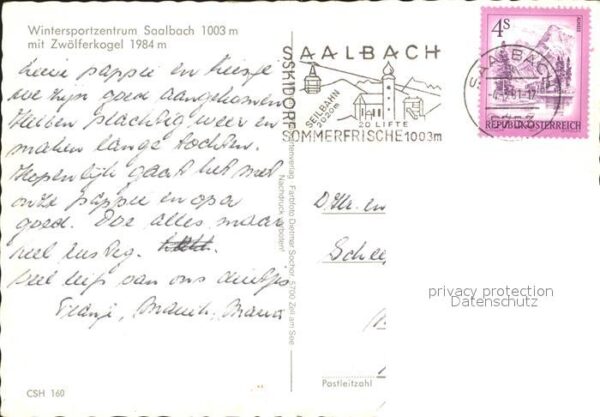 Wintersportzentrum Saalbach 1003 m
mit Zwölferkogel 1984 m
Lieve pappie en
we zijn goed aangekomen
hebben prachtig weer en
maken lange tochten.
Hopenlijk gaat het met
onze pappie en opa
goed. Doe alles maar
heel rustig.
veel liefs van ons
SAALBACH
SKIDORF
SEILBAHN
2020m
20 LIFTE
SOMMERFRISCHE 1003m
4S
ALMSEE
REPUBLIK ÖSTERREICH
SAALBACH
5753
Farbfoto Dietmar Sochor, 5700 Zell am See
Nachdruck verboten!
privacy protection
Datenschutz
Postleitzahl
CSH 160